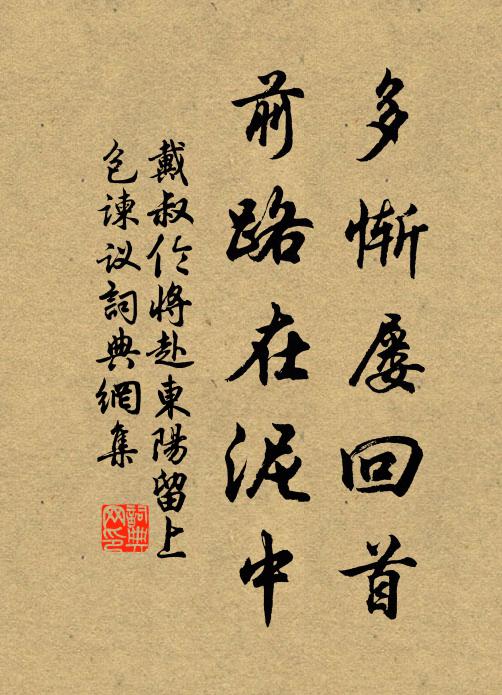 多惭屡回首
前路在泥中
戴叔伦將赴東陽留上
包谏议詞典網集
詞典网印